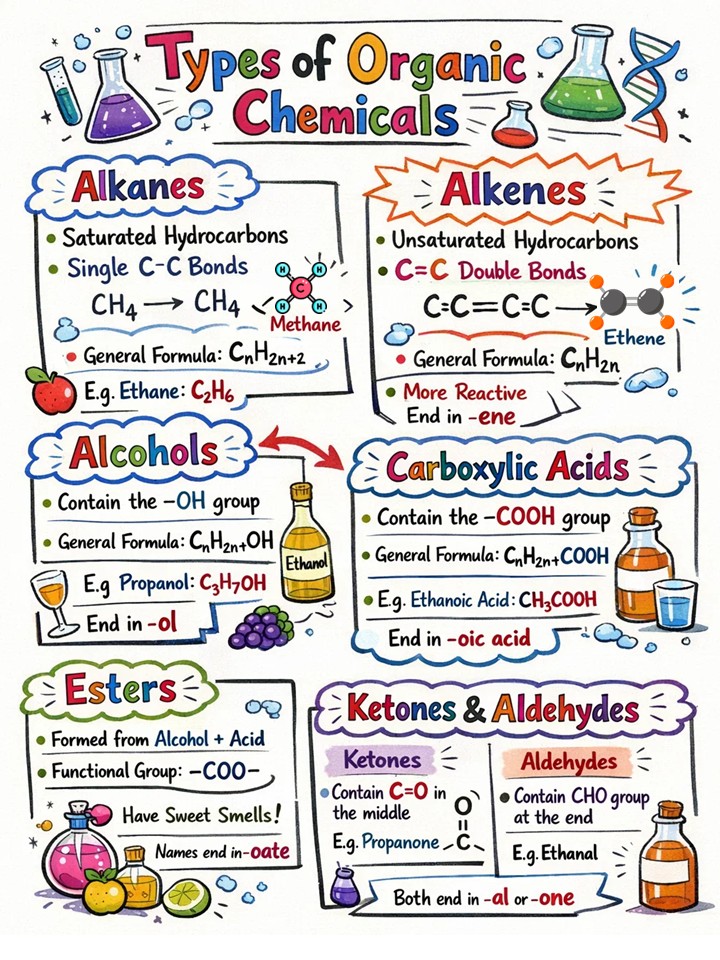 Types of Organic
Chemicals
Alkanes
• Saturated Hydrocarbons
• Single C–C Bonds
CH₄ → CH₄
H H
C
H H
Methane
• General Formula: CₙH₂ₙ₊₂
E.g. Ethane: C₂H₆
Alkenes
• Unsaturated Hydrocarbons
• C=C Double Bonds
C=C=C=C →
Ethene
• General Formula: CₙH₂ₙ
• More Reactive
End in -ene
Alcohols
• Contain the –OH group
• General Formula: CₙH₂ₙ₊OH
E.g Propanol: C₃H₇OH
End in -ol
Ethanol
Carboxylic Acids
• Contain the –COOH group
• General Formula: CₙH₂ₙ₊COOH
• E.g. Ethanoic Acid: CH₃COOH
End in -oic acid
Esters
• Formed from Alcohol + Acid
• Functional Group: –COO–
Have Sweet Smells!
Names end in -oate
Ketones & Aldehydes
Ketones
• Contain C=O in
the middle
E.g. Propanone
O
=
–C–
Aldehydes
• Contain CHO group
at the end
E.g. Ethanal
Both end in -al or -one